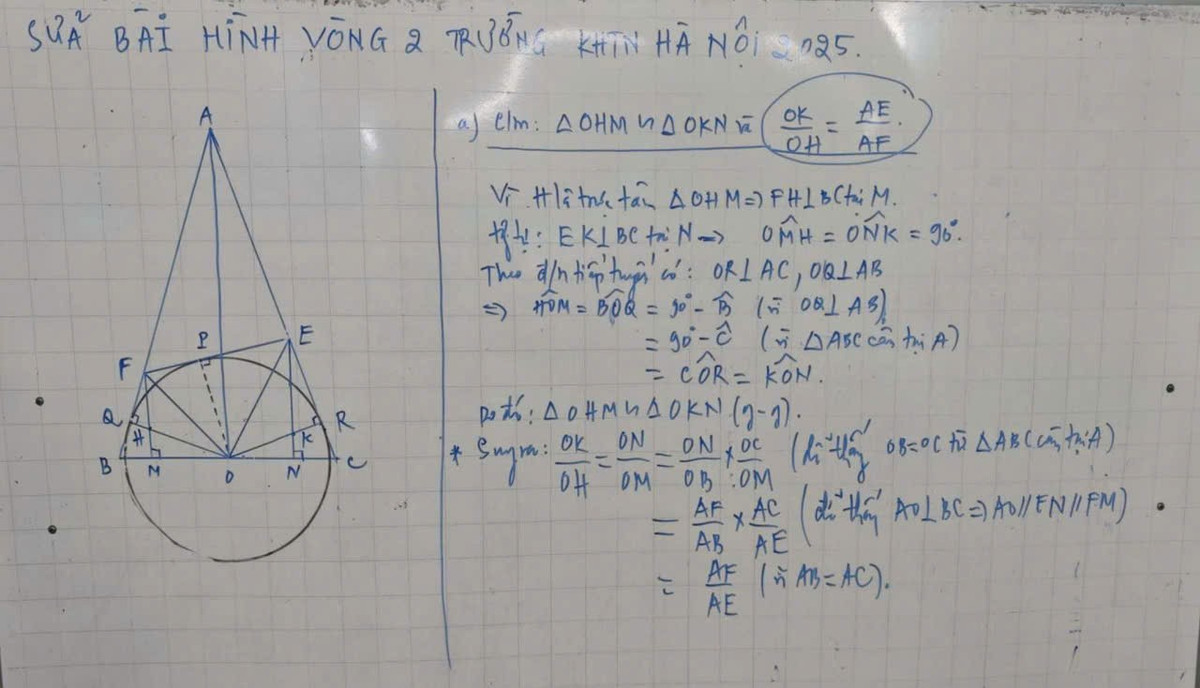 SỬA BÀI HÌNH VÒNG 2 TRƯỜNG KHTN HÀ NỘI 2025.
A
F
P
E
Q
H
R
K
B
M
O
N
C
a) C/m: △OHM ∽ △OKN và OK/OH = AE/AF.
Vì H là trực tâm △OHM ⇒ FH⊥BC tại M.
tg tự: EK⊥BC tại N ⇒ OM̂H = ON̂K = 90°.
Theo đ/n tiếp tuyến có: OR⊥AC, OQ⊥AB
⇒ HÔM = BÔQ = 90° - B̂ (vì OQ⊥AB)
= 90° - Ĉ (vì △ABC cân tại A)
= CÔR = KÔN.
Do đó: △OHM ∽ △OKN (g-g).
* Suy ra: OK/OH = ON/OM = ON/OB × OC/OM (dễ thấy OB=OC từ △ABC cân tại A)
= AF/AB × AC/AE (dễ thấy AO⊥BC ⇒ AO//EN//FM)
= AF/AE (vì AB=AC).